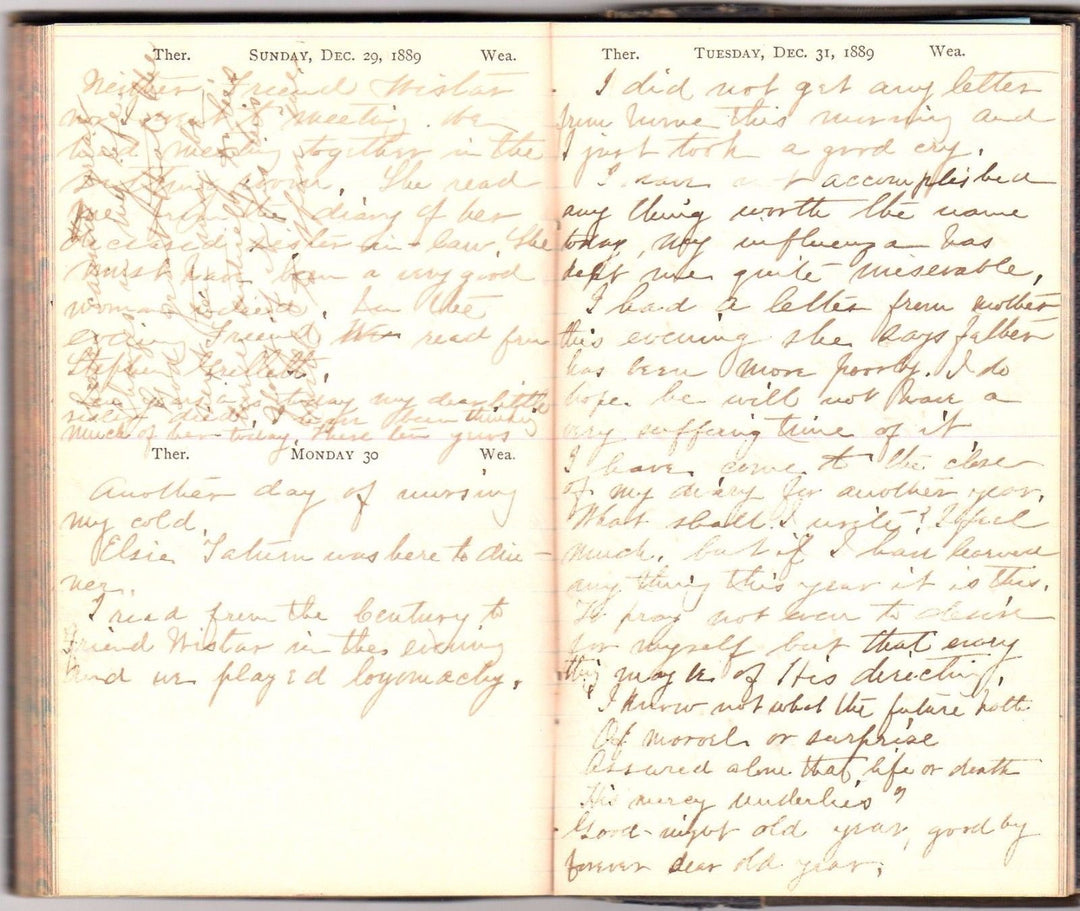 Ther. SUNDAY, DEC. 29, 1889 Wea.
Neither Friend Wistar
nor I went to meeting. We
had meeting together in the
sitting room. She read
me from the diary of her
deceased sister-in-law. She
must have been a very good
woman indeed. In the
evening Friend Wis read from
Stephen Grellett.
ten years ago today my dear little
sister died. I have been thinking
much of her today. These ten years
Ther. MONDAY 30 Wea.
Another day of nursing
my cold.
Elsie Tatum was here to din-
ner.
I read from the Century to
Friend Wistar in the evening
and we played logomachy.
Ther. TUESDAY, DEC. 31, 1889 Wea.
I did not get any letter
from this morning and
I just took a good cry.
I have not accomplished
any thing worth the name
today, my influenza has
kept me quite miserable.
I had a letter from mother
this evening she says father
has been more poorly. I do
hope he will not have a
very suffering time of it
I have come to the close
of my diary for another year.
What shall I write? I feel
much, but if I have learned
any thing this year it is this.
To pray not even to desire
for myself but that every
thing may be of His directing.
"I know not what the future hath
Of marvel or surprise
Assured alone that life or death
His mercy underlies"
Good-night old year, good by
forever dear old year.